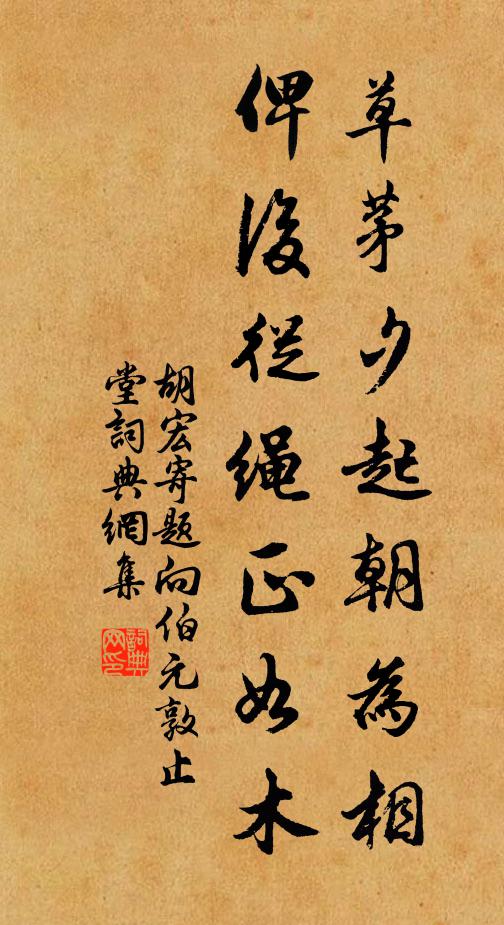 草茅夕起朝為相
俾後從繩正如木
胡宏寄題向伯元敦止
堂詞典網集
詞典网印